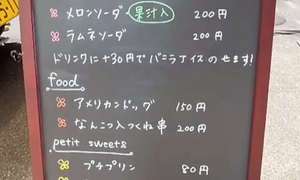 メロンソーダ 果汁入 200円
ラムネソーダ 200円
ドリンクに+30円でバニラアイスのせます!
food
アメリカンドッグ 150円
なんこつ入つくね串 200円
petit sweets
プチプリン 80円